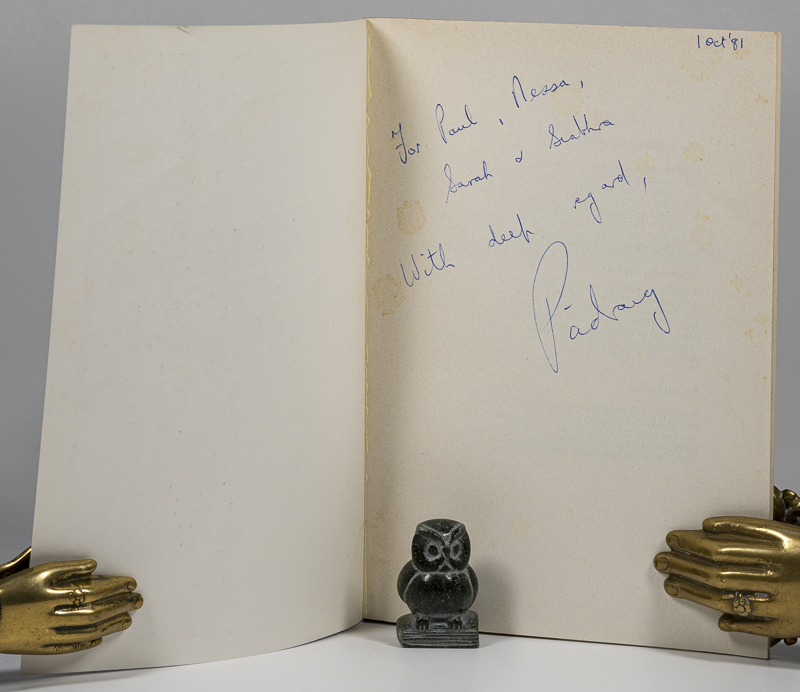 1 Oct '81
For Paul, Nessa,
Sarah & Siabhra
With deep regard,
Pádraig